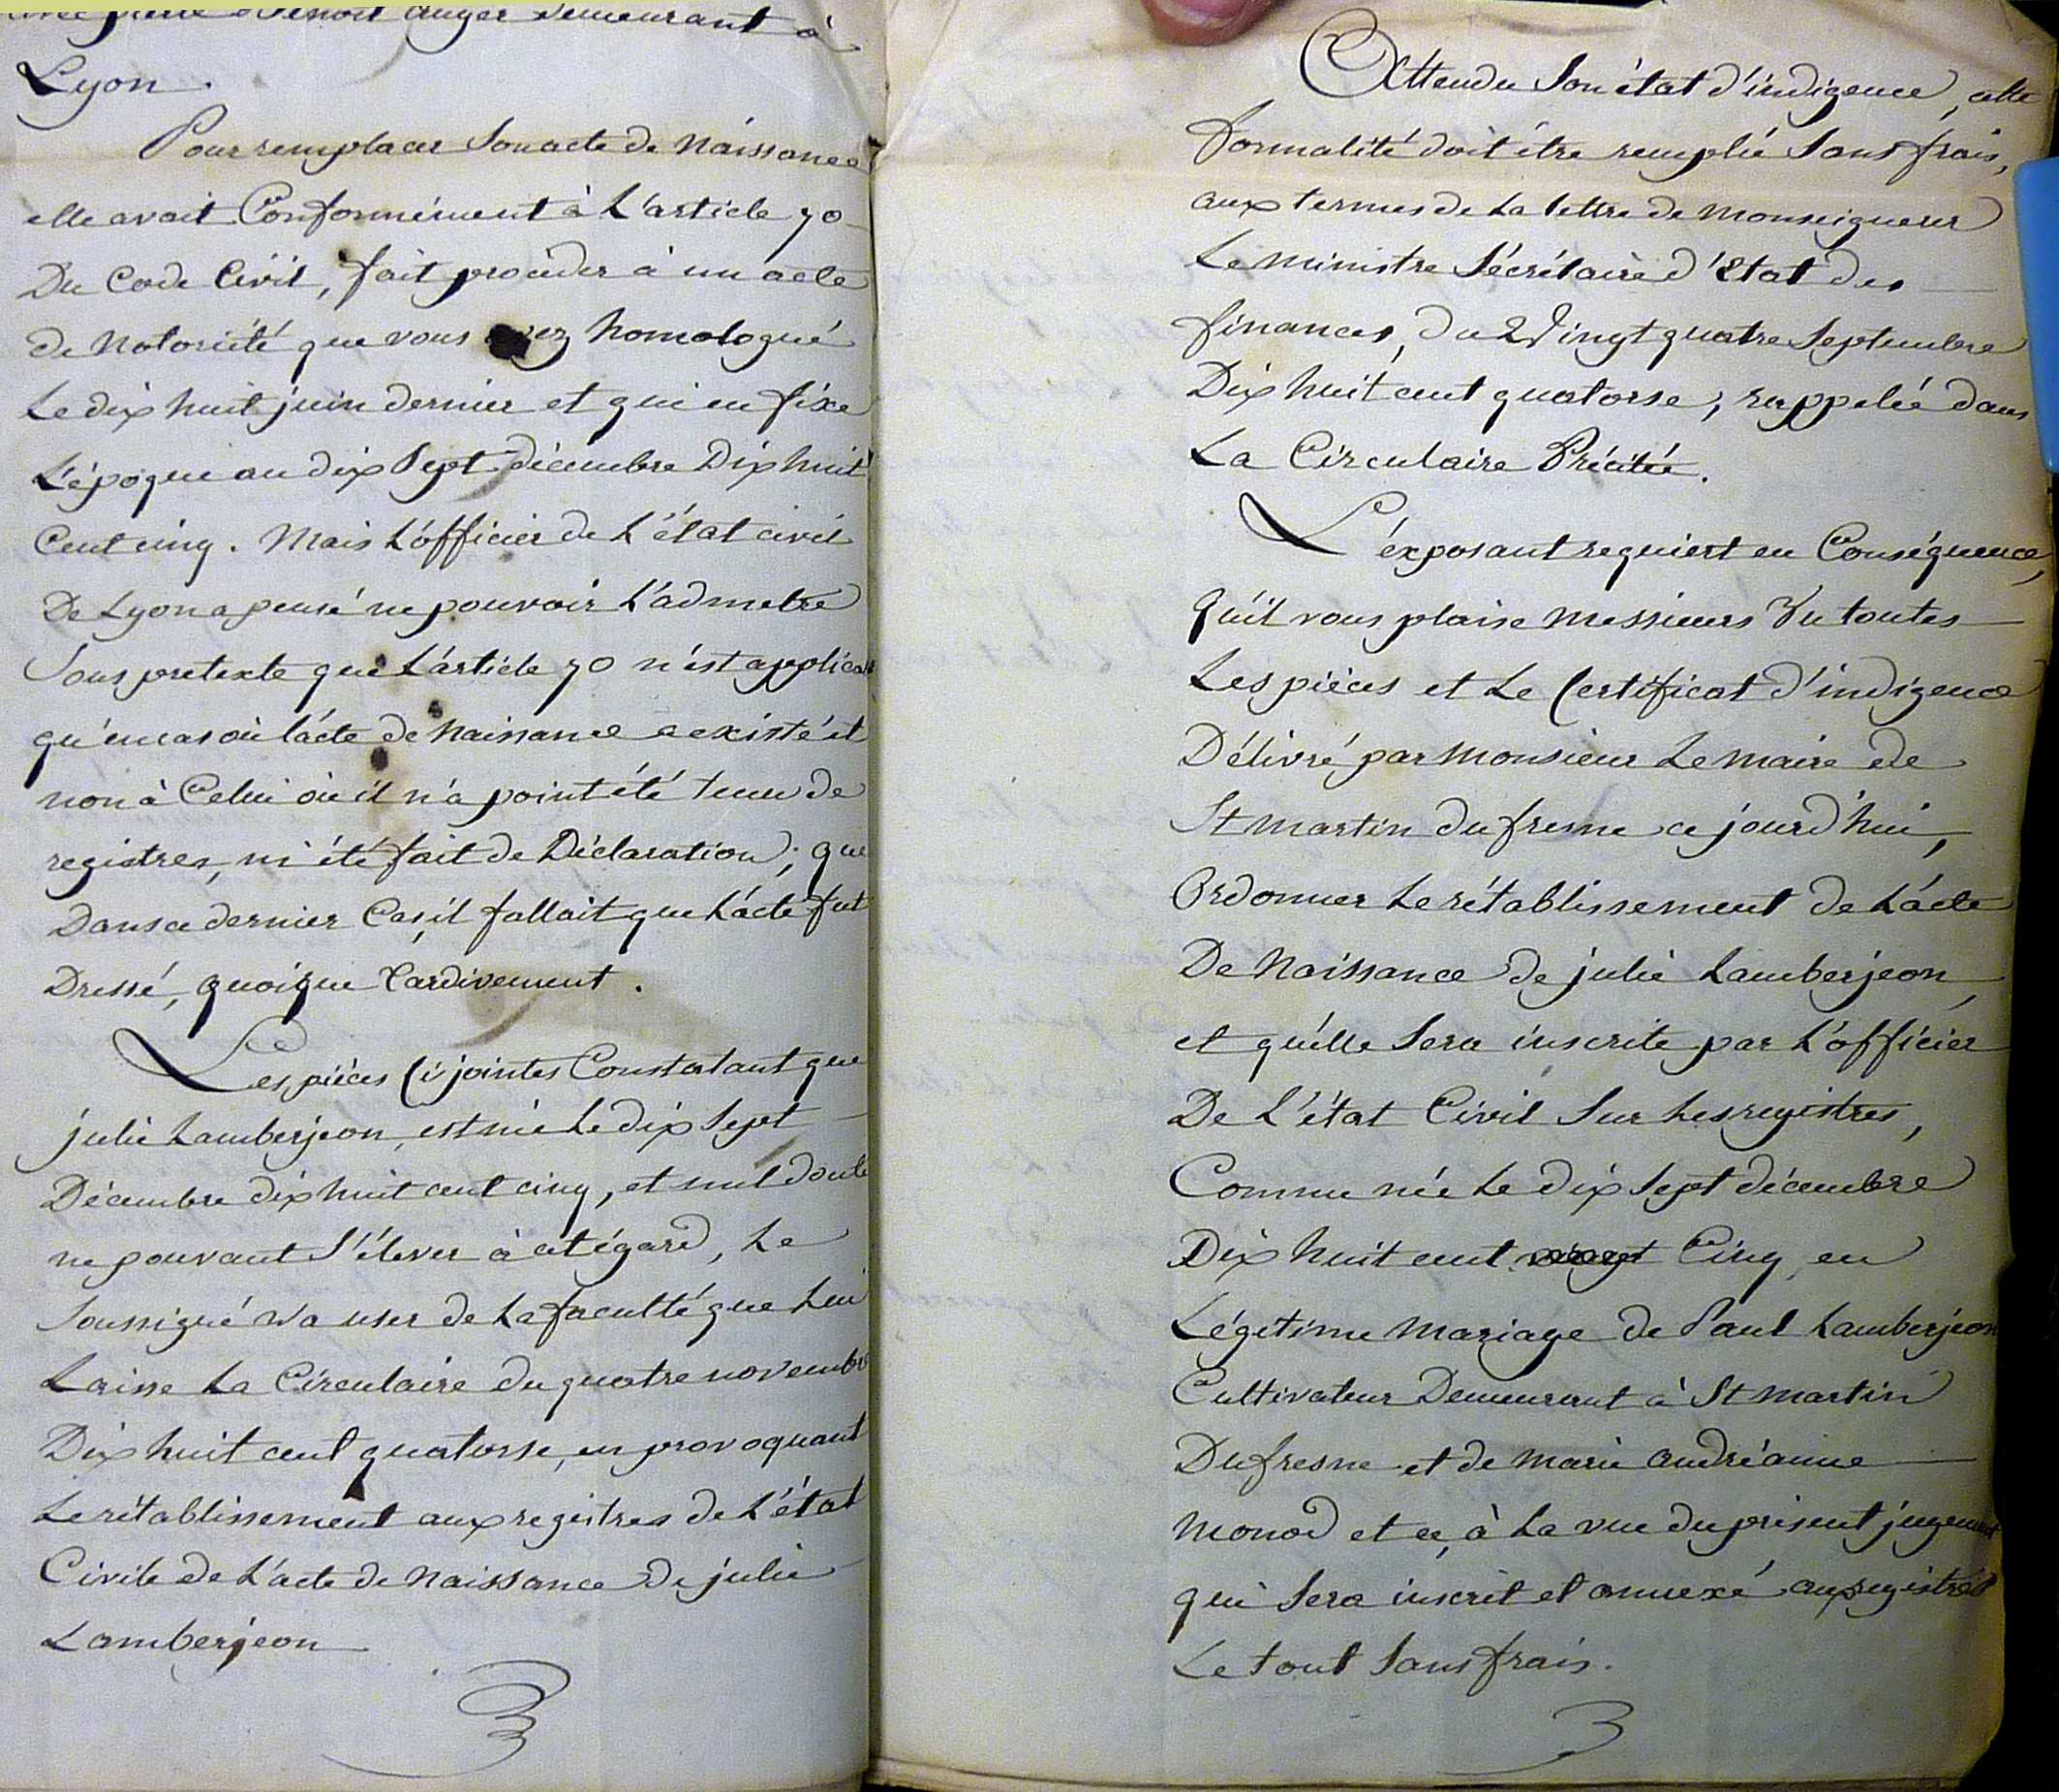 pierre Benoit Auger Demeurant à
Lyon.
Pour remplacer Son acte de Naissance
elle avait Conformément à L'article 70
Du Code Civil, fait procéder à un acte
de Notoriété que vous avez homologué
Le dix huit juin dernier et qui en fixe
L'époque au dix Sept décembre Dix huit
Cent cinq. Mais L'officier de L'état civil
De Lyon a pensé ne pouvoir L'admetre
Sous pretexte que L'article 70 n'est applica
qu'en cas où l'acte de Naissance a existé et
non à Celui où il n'a point été tenu de
registres, ni été fait de Déclaration; que
Dans ce dernier Cas, il fallait que L'acte fut
Dressé, quoique Tardivement.
Les pièces Ci jointes Constatant que
julie Lamberjeon, est née Le dix Sept
Décembre dix huit cent cinq, et nul doute
ne pouvant S'élever à cet égard, Le
Soussigné va user de La faculté que Lui
Laisse La Circulaire du quatre novembre
Dix huit cent quatorse, en provoquant
Le rétablissement aux registres de L'état
Civile de L'acte de Naissance de julie
Lamberjeon
Attendu Son état d'indigence, cette
formalité doit être remplie Sans frais,
aux termes de La lettre de Monseigneur
Le Ministre Sécrétaire d'Etat des
finances, du Vingt quatre Septembre
Dix huit cent quatorse, rappelée dans
La Circulaire Précitée.
L'éxposant requiert en Conséquence,
Qu'il vous plaise Messieurs Vu toutes
Les pièces et Le Certificat d'indigence
Délivré par Monsieur Le Maire de
St Martin Dufresne ce jourd'hui,
Ordonner Le rétablissement de L'acte
De Naissance de julie Lamberjeon,
et qu'elle Sera inscrite par L'officier
De L'état Civil Sur Les registres,
Comme née Le dix Sept décembre
Dix huit cent Cinq, en
Légetime Mariage de Paul Lamberjeon
Cultivateur Demeurant à St Martin
Dufresne et de Marie andréanne
Monod et ce, à La vue du présent jugement
qui Sera inscrit et annexé aux registres
Le tout Sans frais.